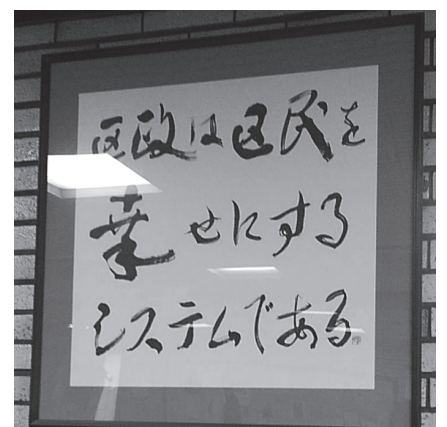 区政は区民を
幸せにする
システムである